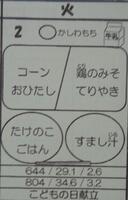 火
2 かしわもち 牛乳
コーン
おひたし
鶏のみそ
てりやき
たけのこ
ごはん
すまし汁
644 / 29.1 / 2.6
804 / 34.6 / 3.2
こどもの日献立